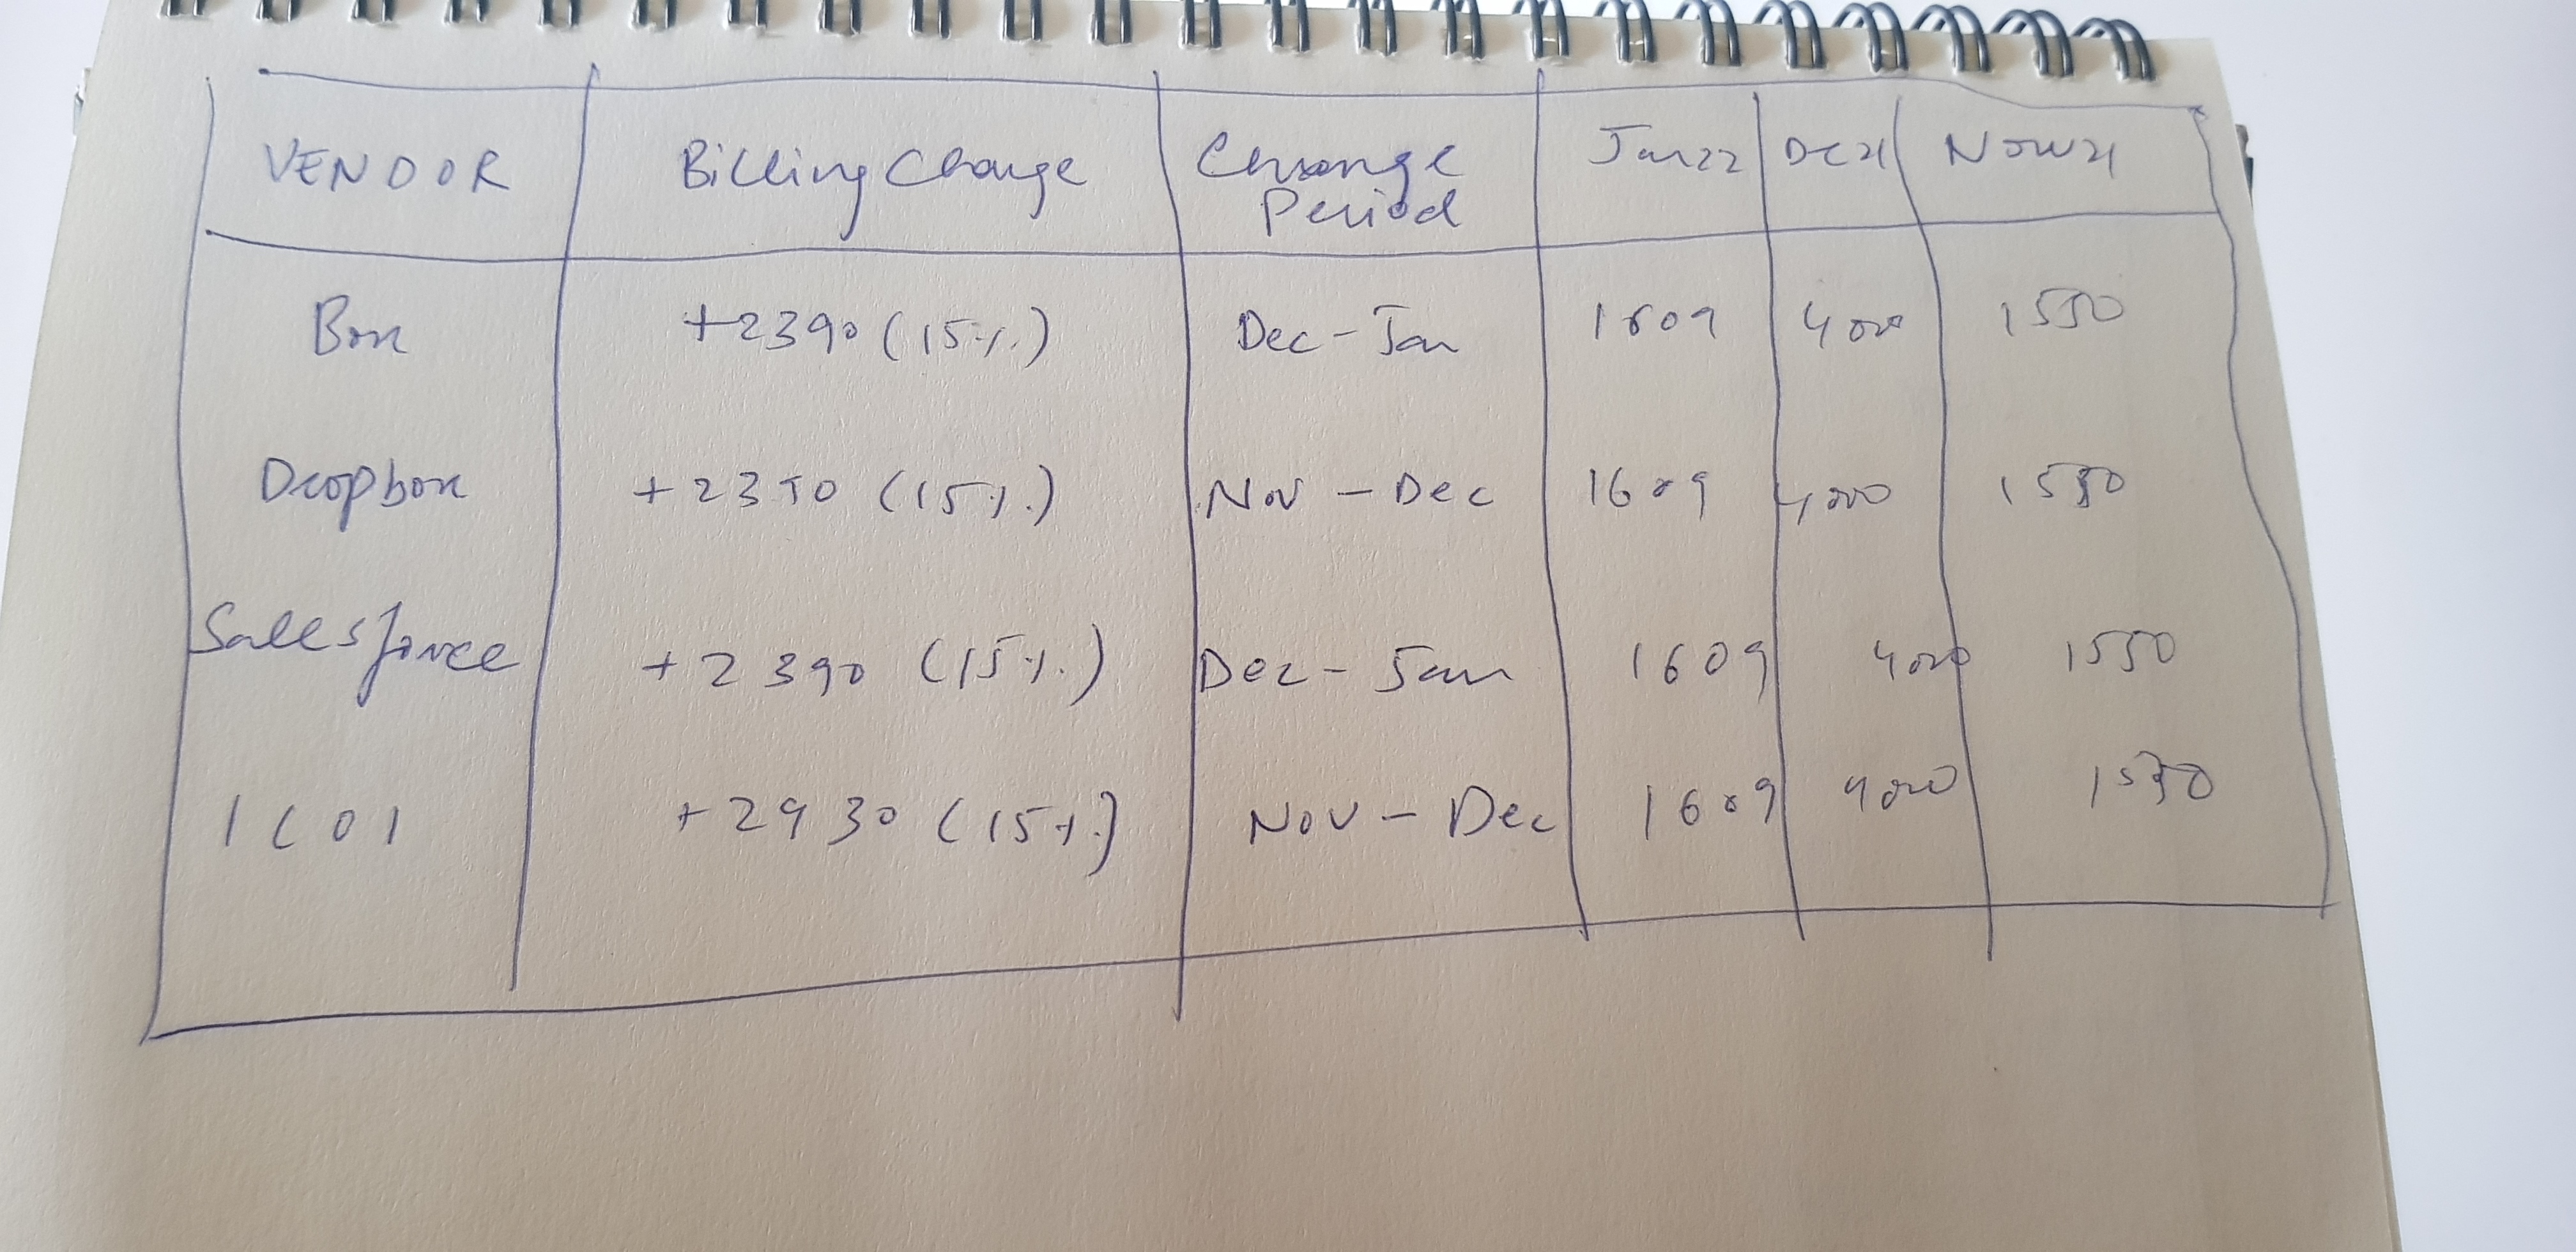 VENDOR Billing Change Change Period Jan22 Dec21 Nov21
Box +2390 (15%) Dec-Jan 1609 4000 1550
Dropbox +2350 (15%) Nov - Dec 1609 4000 1550
Salesforce +2390 (15%) Dec - Jan 1609 4000 1550
+2930 (15%) Nov - Dec 1609 4000 1550